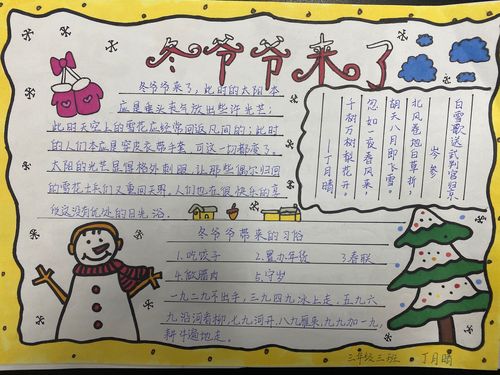 冬爷爷来了
冬爷爷来了,此时的太阳本
应是垂头丧气放出些许光芒;
此时天空上的雪花应经常回返凡间的;此时
的人们本应是穿皮衣带手套,可这一切都变了。
太阳的光芒显得格外刺眼,让那些偶尔归回
的雪花士兵们又重回天界,人们也在很快乐的享
受这没有忧愁的日光浴。
白雪歌送武判官归京
岑参
北风卷地白草折,
胡天八月即飞雪。
忽如一夜春风来,
千树万树梨花开。
——丁月晴
冬爷爷带来的习俗
1.吃饺子 2.置办年货 3.春联
4.做腊肉 5.守岁
一九二九不出手,三九四九冰上走,五九六
九沿河看柳,七九河开,八九雁来,九九加一九,
耕牛遍地走。
三年级三班 丁月晴